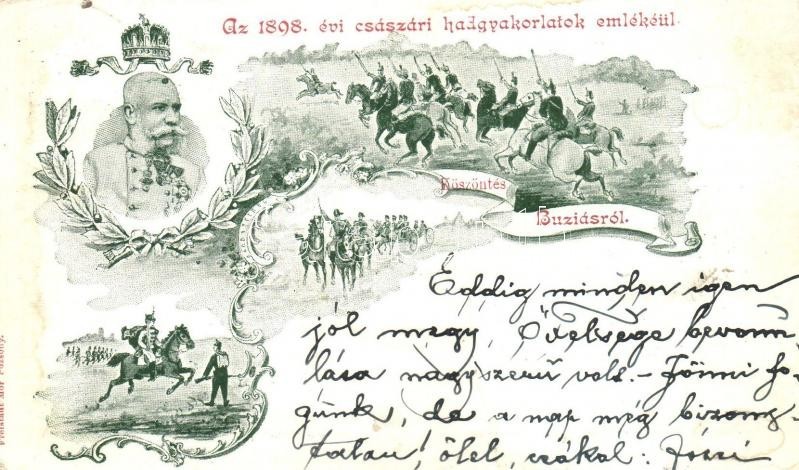 Az 1898. évi császári hadgyakorlatok emlékéül.
Köszöntés
Buziásról.
Eddig minden igen
jól megy, Őfelsége bevonu
lása nagyszerű vols. – Jönni fo-
gunk, de a nap még bizony-
talan! ölel, csókol: Józsi